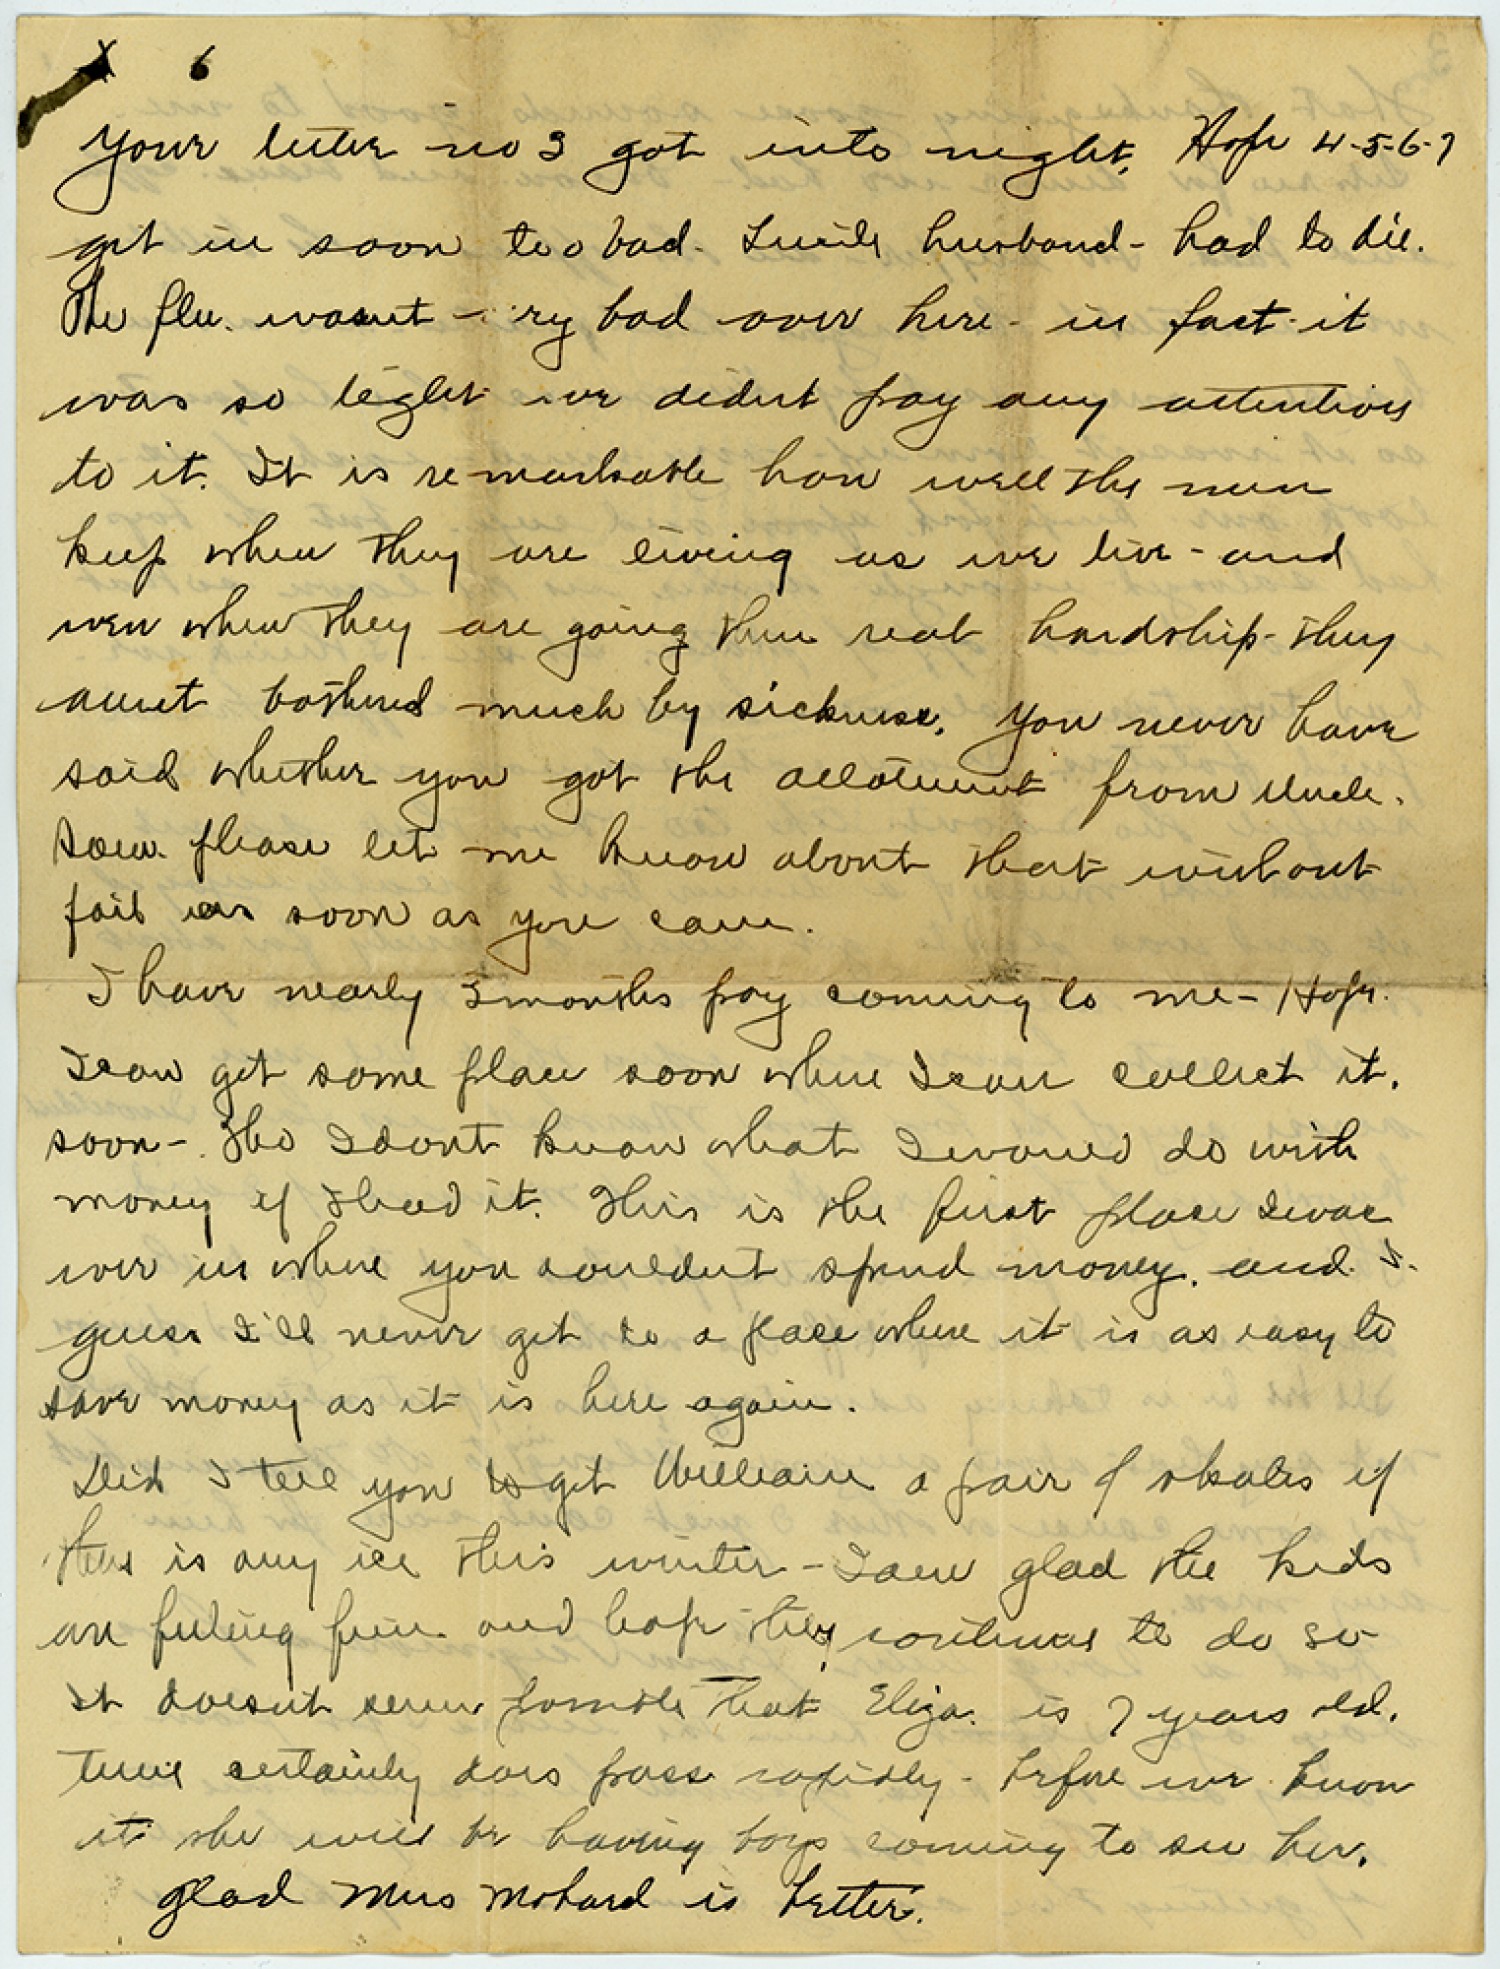 X 6
Your letter no 3 got into night. Hope 4-5-6-7
get in soon too bad - Lucile husband - had to die.
The flu. wasnt ry bad over here - in fact - it
was so light we didnt pay any attention
to it. It is remarkable how well the men
keep when they are living as we live - and
even when they are going thru real hardship - they
arent bothered much by sickness. You never have
said whether you got the allotment from Uncle.
Sam. please let me know about that without
fail as soon as you can.
I have nearly 3 months pay coming to me - Hope.
I can get some place soon where I can collect it.
soon - . Tho I dont know what I would do with
money if I had it. This is the first place I was
ever in where you couldnt spend money. and I.
guess I'll never get to a place where it is as easy to
save money as it is here again.
Did I tell you to get William a pair of skates if
there is any ice this winter - I am glad the kids
are feeling fine and hope they continue to do so
It doesnt seem possible that Eliza. is 7 years old.
time certainly does pass rapidly - before we know
it she will be having boys coming to see her.
glad Mrs is better.